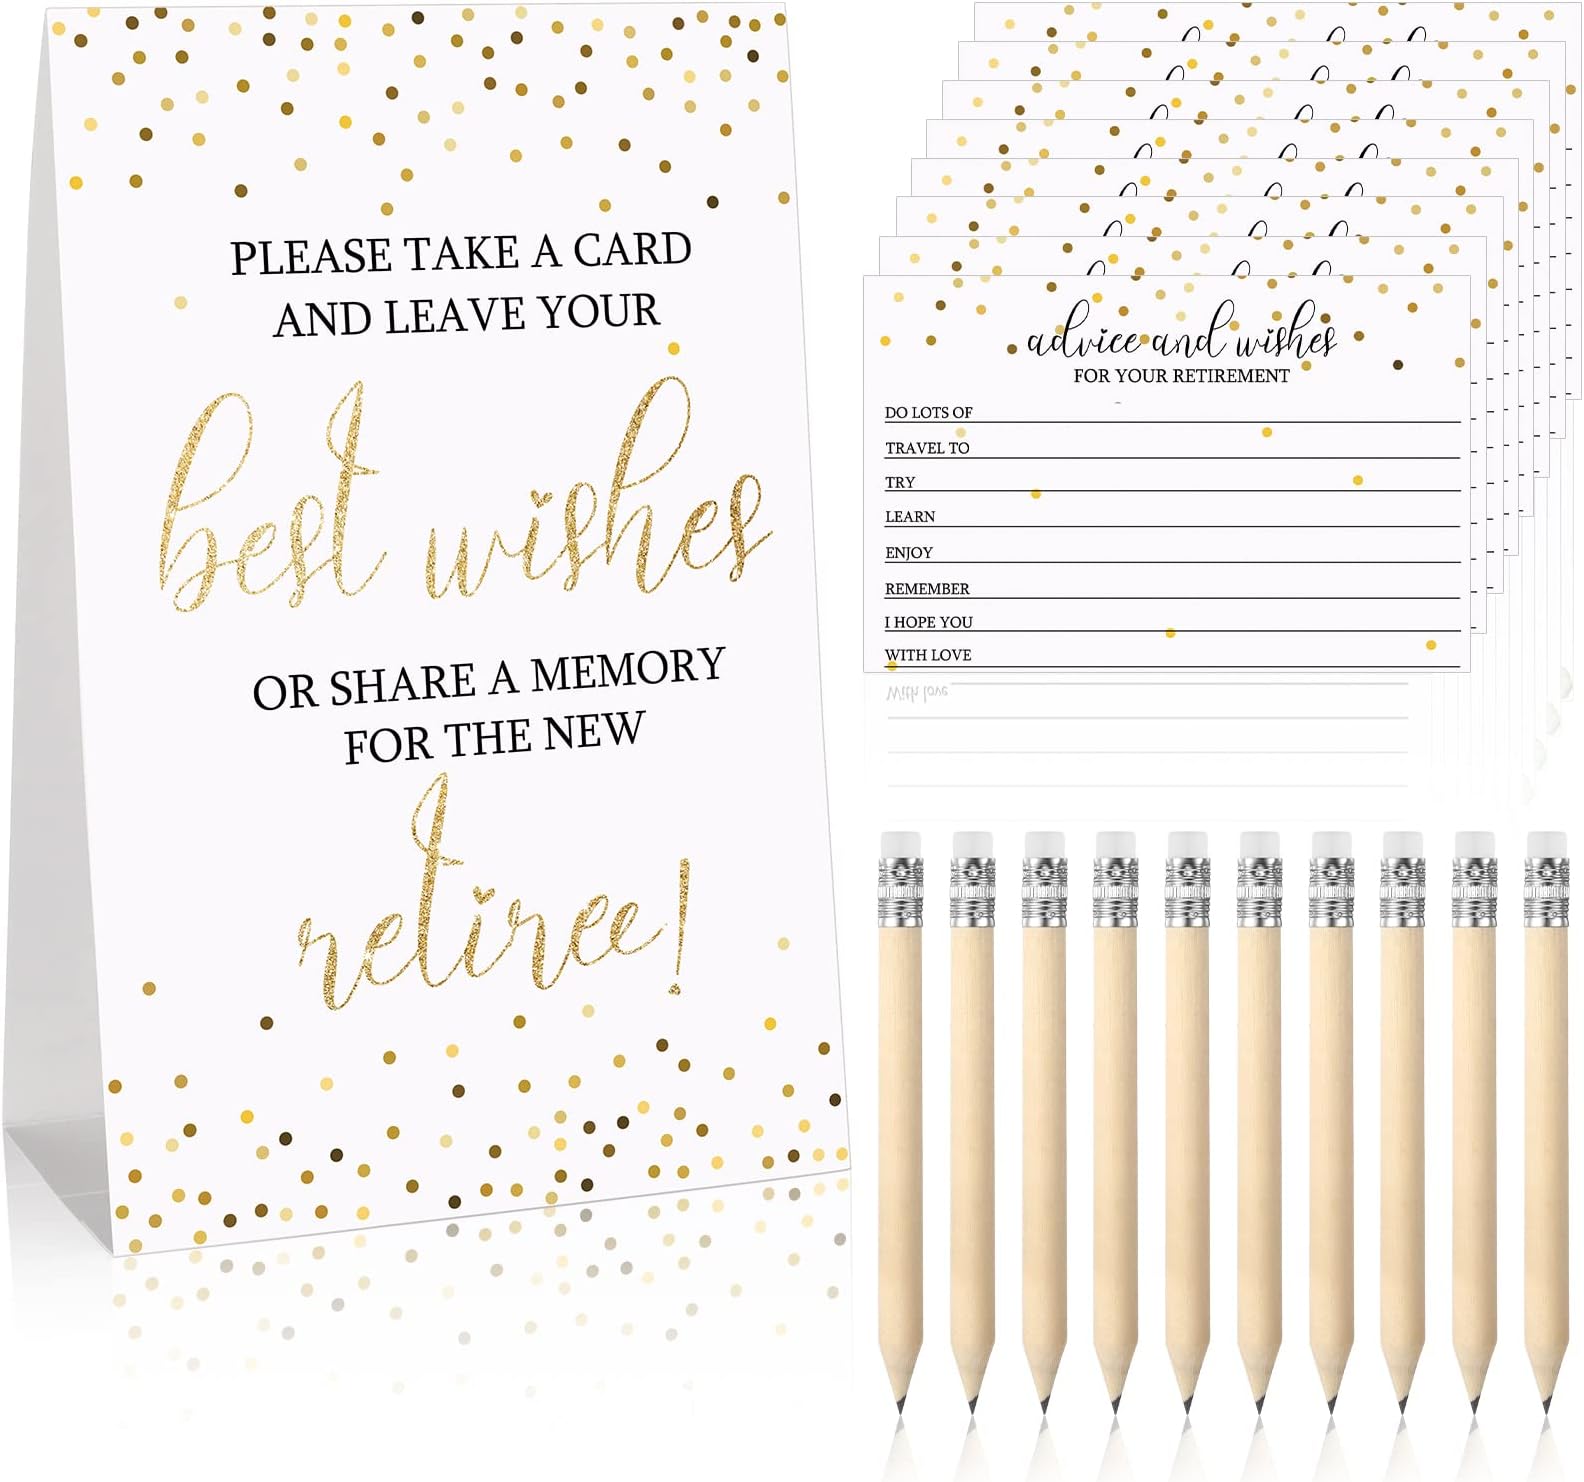 PLEASE TAKE A CARD
AND LEAVE YOUR
best wishes
OR SHARE A MEMORY
FOR THE NEW
retiree!
advice and wishes
FOR YOUR RETIREMENT
DO LOTS OF
TRAVEL TO
TRY
LEARN
ENJOY
REMEMBER
I HOPE YOU
WITH LOVE
With love